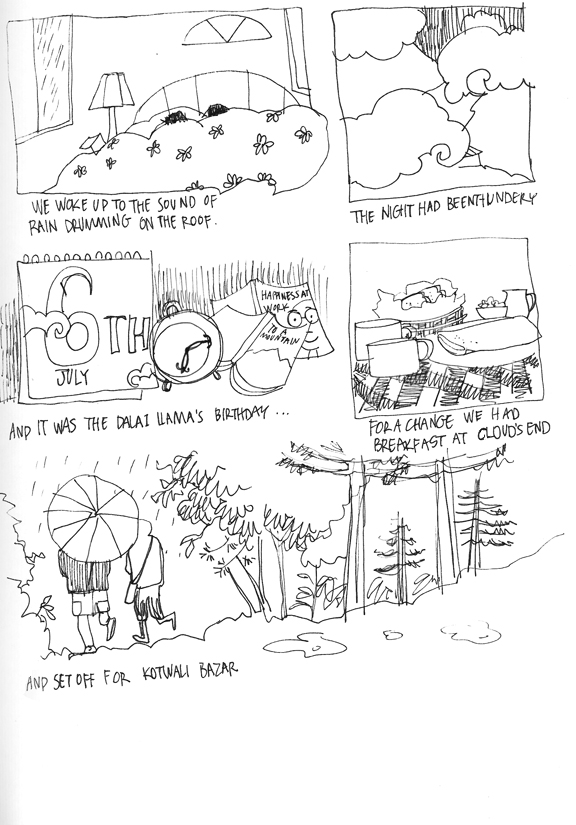 WE WOKE UP TO THE SOUND OF
RAIN DRUMMING ON THE ROOF.
THE NIGHT HAD BEEN THUNDERY
6TH
JULY
HAPPINESS AT
WORK
TO A
MOUNTAIN
AND IT WAS THE DALAI LLAMA'S BIRTHDAY ...
FOR A CHANGE WE HAD
BREAKFAST AT CLOUD'S END
AND SET OFF FOR KOTWALI BAZAR